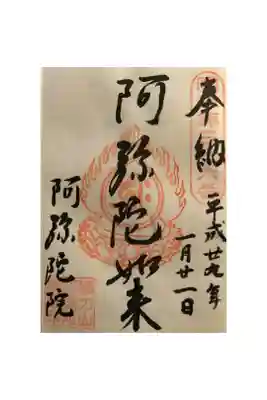 奉納
平成廿九年
一月廿一日
阿弥陀如来
阿弥陀院